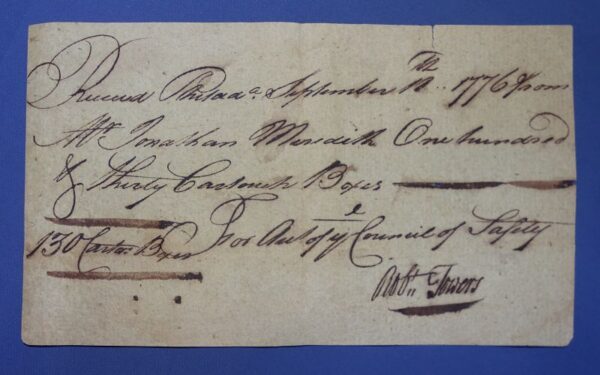 Received Philada. September 12th. 1776 from
Mr. Jonathan Meredith One hundred
& thirty Cartouch Boxes
130 Cartoh Boxes For Acct of ye Council of Safety
Robt. Towers